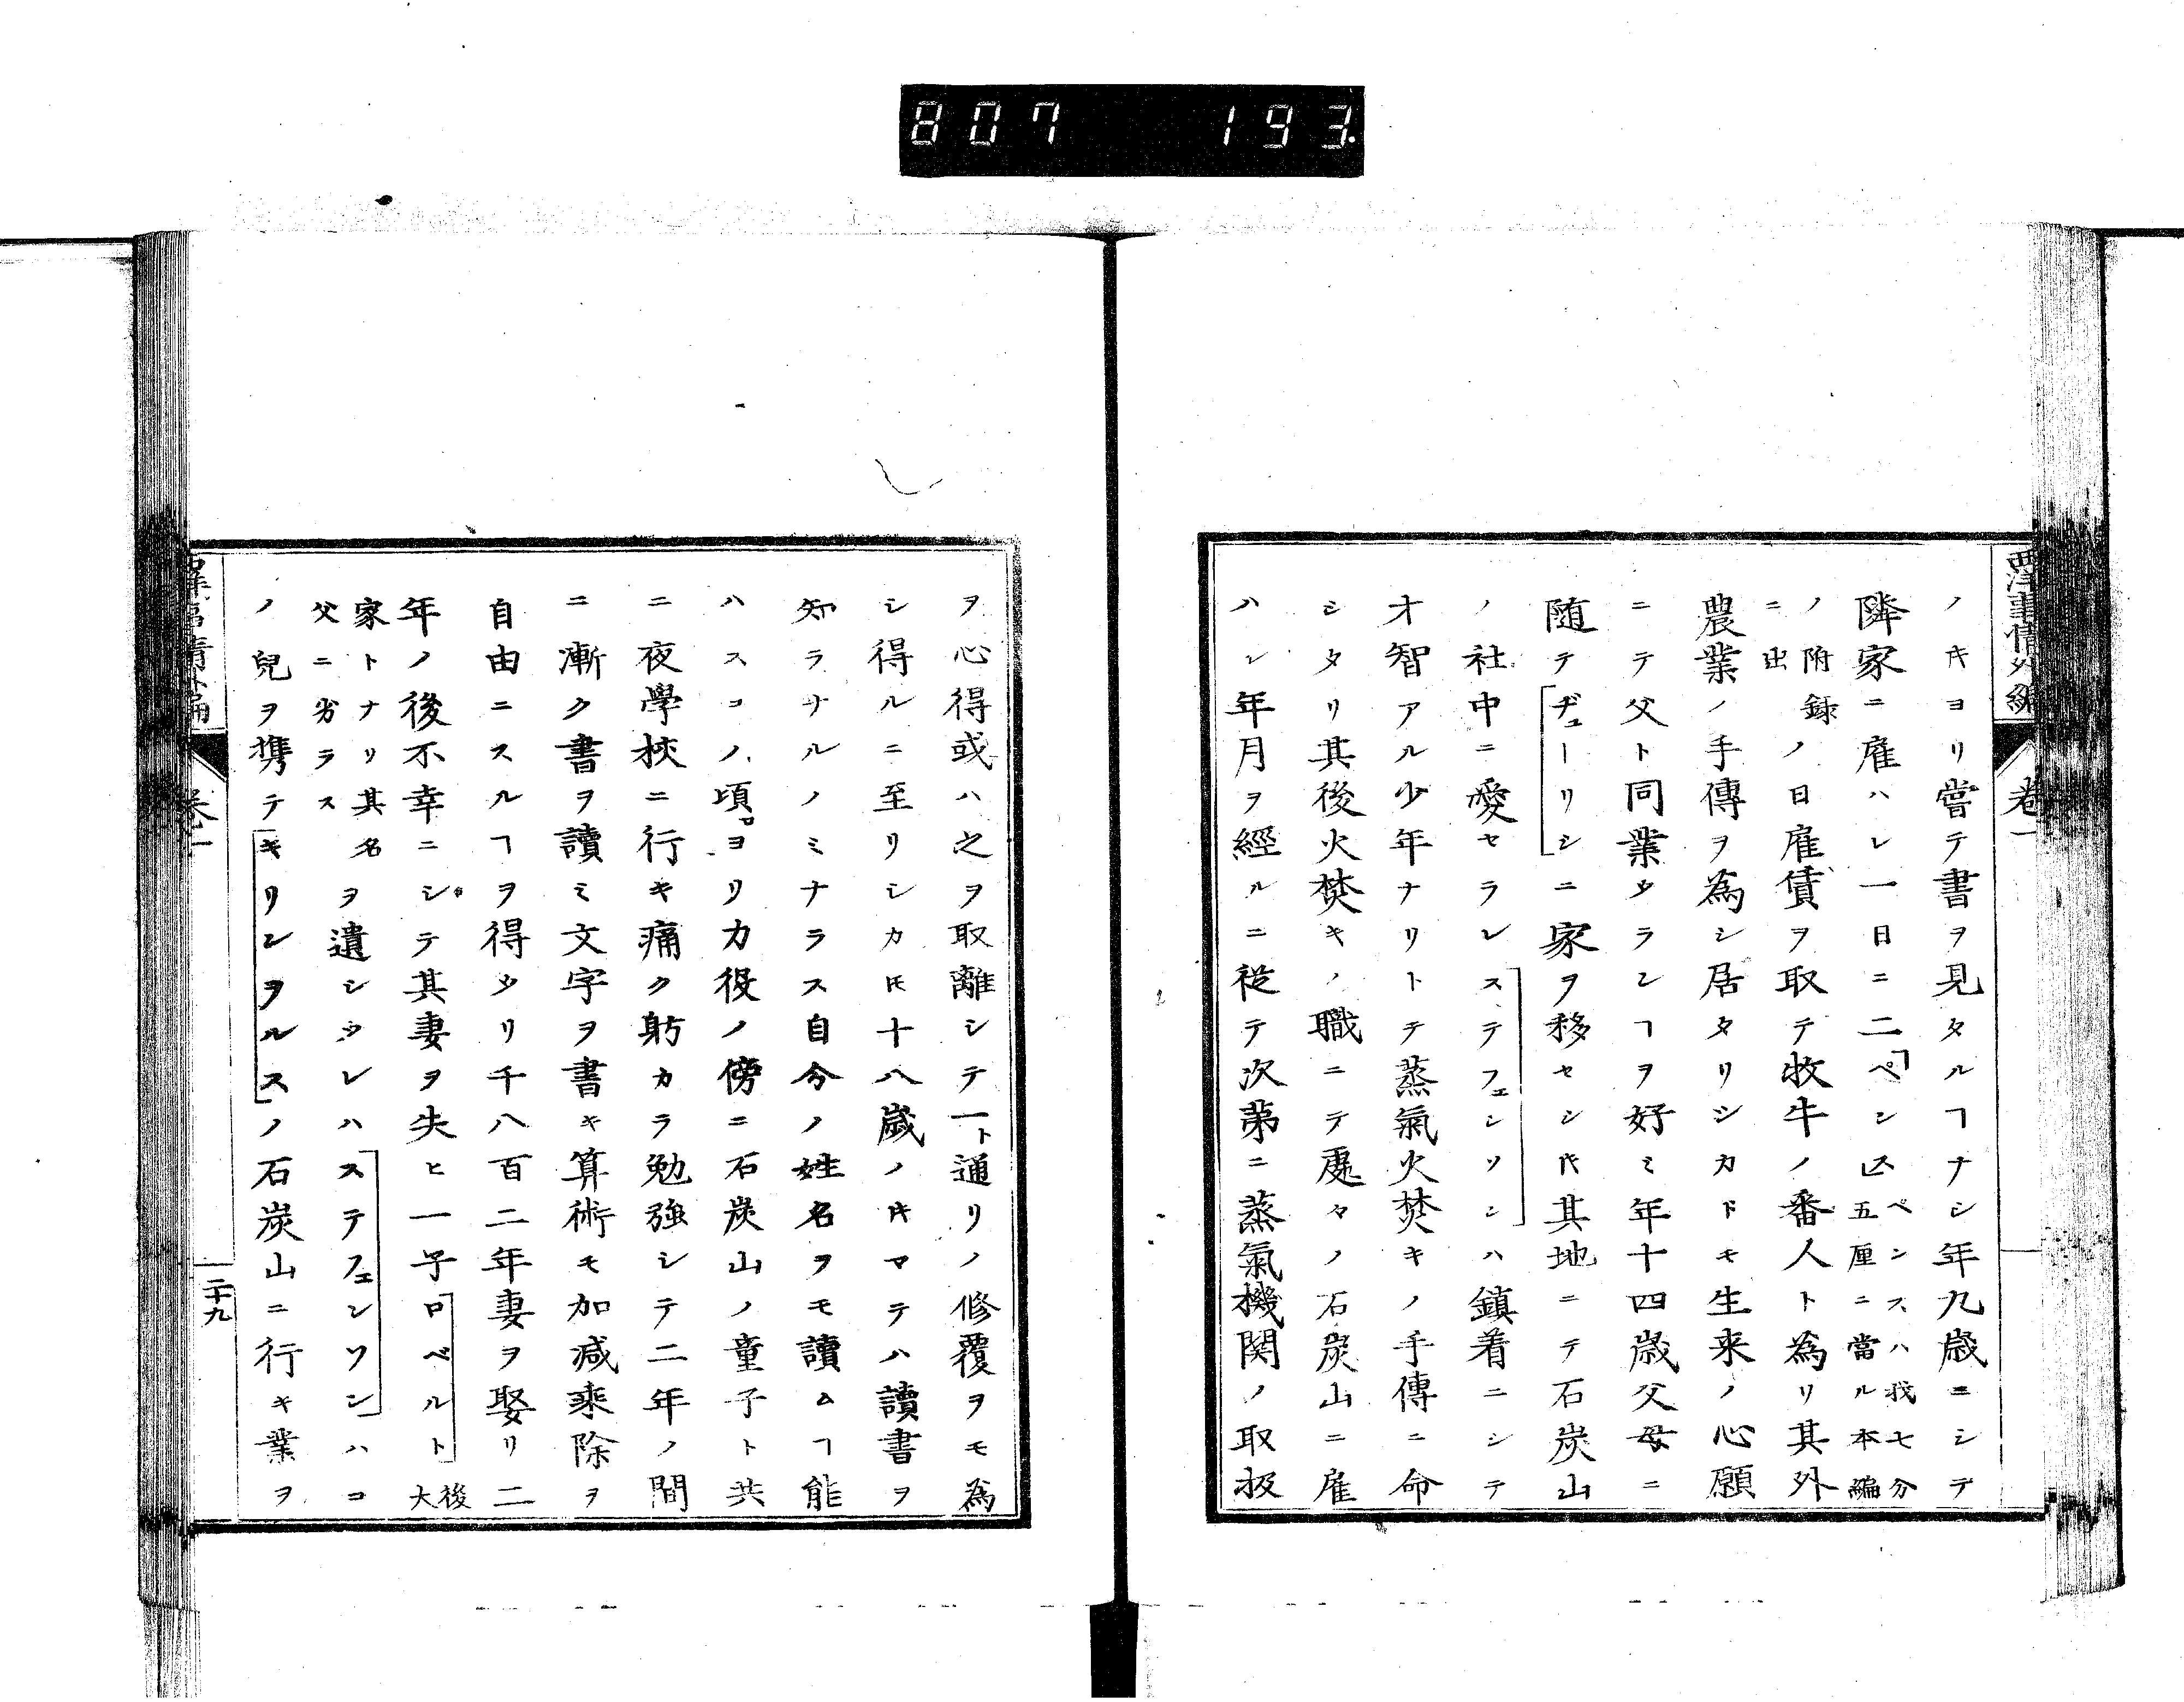 807 193
西洋事情外編 卷一
ノ𪜈ヨリ嘗テ書ヲ見タルヿナシ年九歳ニシテ
隣家ニ雇ハレ一日ニ二「ペンス」ペンスハ我七分五厘ニ當ル本編
ノ附録ニ出ノ日雇賃ヲ取テ牧牛ノ番人ト為リ其外
農業ノ手傳ヲ為シ居タリシカドモ生来ノ心願
ニテ父ト同業タランヿヲ好ミ年十四歳父母ニ
随テ「ヂューリシ」ニ家ヲ移セシ𪜈其地ニテ石炭山
ノ社中ニ愛セラレ「ステフェンソン」ハ鎮着ニシテ
才智アル少年ナリトテ蒸氣火焚キノ手傳ニ命
シタリ其後火焚キノ職ニテ處々ノ石炭山ニ雇
ハレ年月ヲ經ルニ従テ次第ニ蒸氣機関ノ取扱
ヲ心得或ハ之ヲ取離シテ一ト通リノ修覆ヲモ為
シ得ルニ至リシカ𪜈十八歳ノ𪜈マテハ讀書ヲ
知ラサルノミナラス自分ノ姓名ヲモ讀ムヿ能
ハスコノ頃ヨリカ役ノ傍ニ石炭山ノ童子ト共
ニ夜學校ニ行キ痛ク躬カラ勉強シテ二年ノ間
ニ漸ク書ヲ讀ミ文字ヲ書キ算術モ加減乘除ヲ
自由ニスルヿヲ得タリ千八百二年妻ヲ娶リ二
年ノ後不幸ニシテ其妻ヲ失ヒ一子「ロベルト」後大
家トナリ其名父ニ劣ラスヲ遺シタレハ「ステフェンソン」ハコ
ノ兒ヲ携テ「キリンヲルス」ノ石炭山ニ行キ業ヲ
西洋事情外編 卷一 二十九